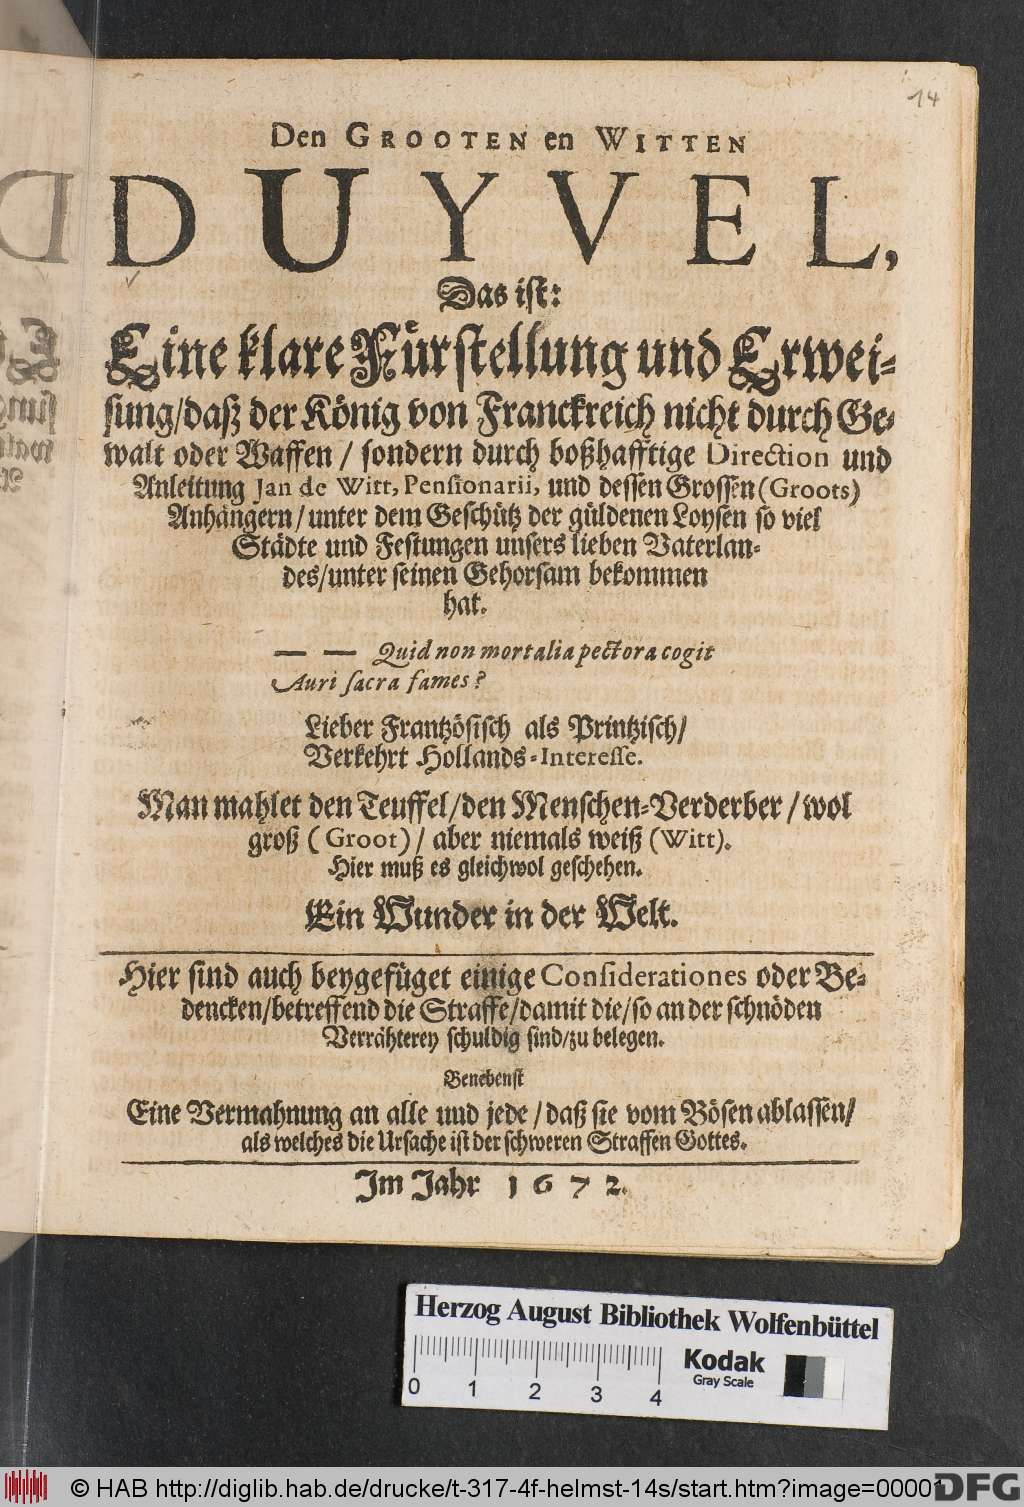 14
Den GROOTEN en WITTEN
DUYVEL,
Das ist:
Eine klare Fürstellung und Erwei-
sung/daß der König von Franckreich nicht durch Ge-
walt oder Waffen / sondern durch boßhafftige Direction und
Anleitung Jan de Witt, Pensionarii, und dessen Grossen (Groots)
Anhängern/unter dem Geschütz der güldenen Loysen so viel
Städte und Festungen unsers lieben Vaterlan-
des/unter seinen Gehorsam bekommen
hat.
— — Quid non mortalia pectora cogit
Auri sacra fames?
Lieber Frantzösisch als Printzisch/
Verkehrt Hollands-Interesse.
Man mahlet den Teuffel/den Menschen-Verderber / wol
groß (Groot)/ aber niemals weiß (Witt).
Hier muß es gleichwol geschehen.
Ein Wunder in der Welt.
Hier sind auch beygefüget einige Considerationes oder Be-
dencken/betreffend die Straffe/damit die/so an der schnöden
Verrähterey schuldig sind/zu belegen.
Benebenst
Eine Vermahnung an alle und jede / daß sie vom Bösen ablassen/
als welches die Ursache ist der schweren Straffen Gottes.
Im Jahr 1672.
Herzog August Bibliothek Wolfenbüttel
0 1 2 3 4
Kodak
Gray Scale
© HAB http://diglib.hab.de/drucke/t-317-4f-helmst-14s/start.htm?image=00001
DFG